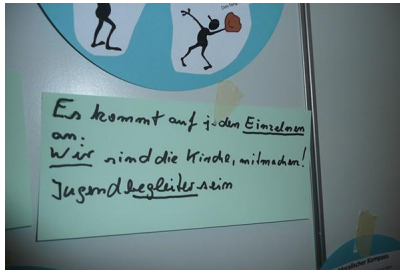 Es kommt auf jeden Einzelnen
an.
Wir sind die Kirche, mitmachen!
Jugendbegleiter sein
Kompass